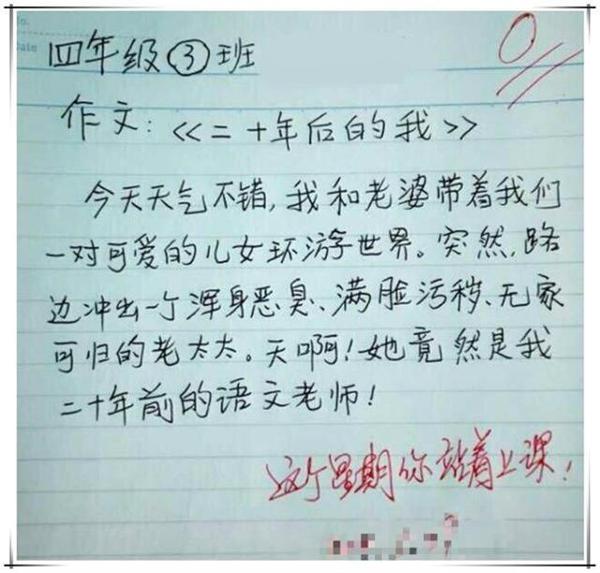 0
四年级③班
作文：《二十年后的我》
今天天气不错，我和老婆带着我们
一对可爱的儿女环游世界。突然，路
边冲出一个浑身恶臭、满脸污秽、无家
可归的老太太。天啊！她竟然是我
二十年前的语文老师！
这个星期你站着上课！